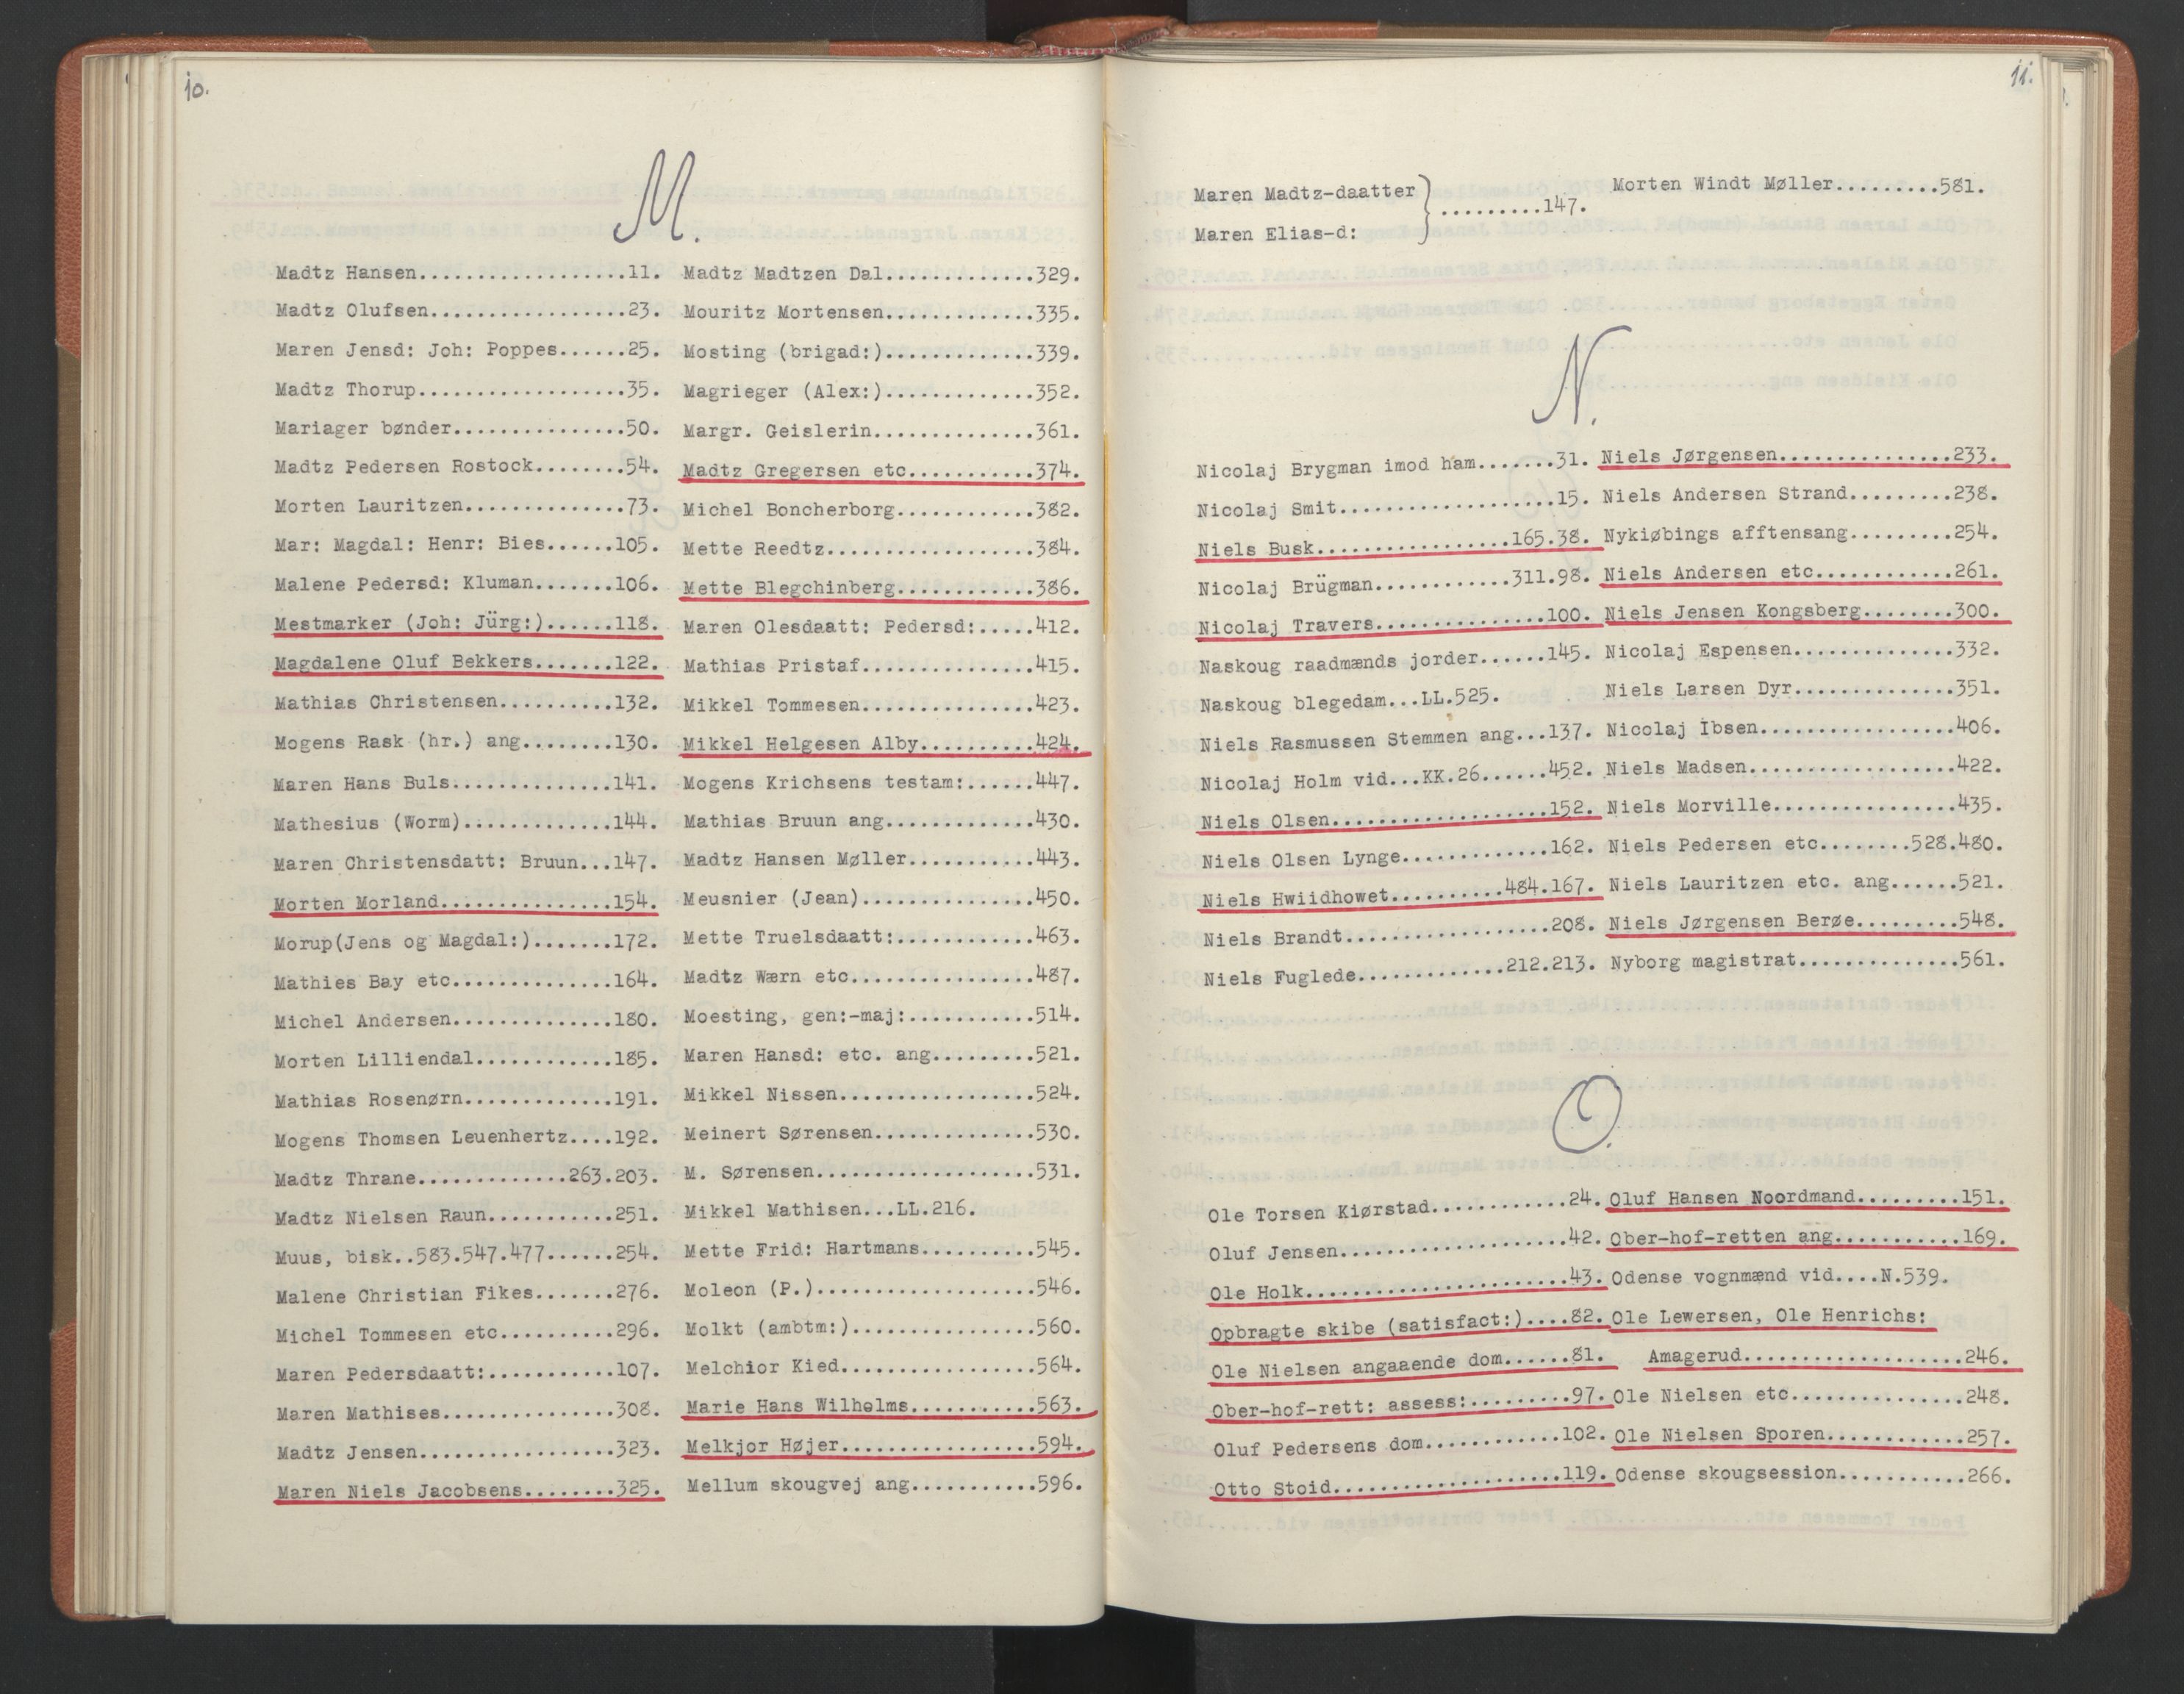 10.
M.
Madtz Hansen...................11.
Madtz Olufsen..................23.
Maren Jensd: Joh: Poppes......25.
Madtz Thorup...................35.
Mariager bønder................50.
Madtz Pedersen Rostock........54.
Morten Lauritzen...............73.
Mar: Magdal: Henr: Bies......105.
Malene Pedersd: Kluman.......106.
Mestmarker (Joh: Jürg:)......118.
Magdalene Oluf Bekkers.......122.
Mathias Christensen..........132.
Mogens Rask (hr.) ang........130.
Maren Hans Buls..............141.
Mathesius (Worm).............144.
Maren Christensdatt: Bruun...147.
Morten Morland...............154.
Morup(Jens og Magdal:).......172.
Mathies Bay etc..............164.
Michel Andersen..............180.
Morten Lilliendal............185.
Mathias Rosenørn.............191.
Mogens Thomsen Leuenhertz....192.
Madtz Thrane.............263.203.
Madtz Nielsen Raun...........251.
Muus, bisk..583.547.477......254.
Malene Christian Fikes.......276.
Michel Tommesen etc..........296.
Maren Pedersdaatt:...........107.
Maren Mathises...............308.
Madtz Jensen.................323.
Maren Niels Jacobsens........325.
Madtz Madtzen Dal.............329.
Mouritz Mortensen.............335.
Mosting (brigad:).............339.
Magrieger (Alex:).............352.
Margr. Geislerin..............361.
Madtz Gregersen etc...........374.
Michel Boncherborg............382.
Mette Reedtz..................384.
Mette Blegchinberg............386.
Maren Olesdaatt: Pedersd:.....412.
Mathias Pristaf...............415.
Mikkel Tommesen...............423.
Mikkel Helgesen Alby..........424.
Mogens Krichsens testam:......447.
Mathias Bruun ang.............430.
Madtz Hansen Møller...........443.
Meusnier (Jean)...............450.
Mette Truelsdaatt:............463.
Madtz Wærn etc................487.
Moesting, gen:-maj:...........514.
Maren Hansd: etc. ang.........521.
Mikkel Nissen.................524.
Meinert Sørensen..............530.
M. Sørensen...................531.
Mikkel Mathisen...LL.216.
Mette Frid: Hartmans..........545.
Moleon (P.)...................546.
Molkt (ambtm:)................560.
Melchior Kied.................564.
Marie Hans Wilhelms...........563.
Melkjor Højer.................594.
Mellum skougvej ang...........596.
11.
Maren Madtz-daatter
Maren Elias-d: } .........147.
Morten Windt Møller.........581.
N.
Nicolaj Brygman imod ham.......31.
Nicolaj Smit...................15.
Niels Busk.................165.38.
Nicolaj Brügman............311.98.
Nicolaj Travers...............100.
Naskoug raadmænds jorder......145.
Naskoug blegedam...LL.525.
Niels Rasmussen Stemmen ang...137.
Nicolaj Holm vid...KK.26......452.
Niels Olsen...................152.
Niels Olsen Lynge.............162.
Niels Hwiidhowet..........484.167.
Niels Brandt..................208.
Niels Fuglede.............212.213.
Niels Jørgensen...............233.
Niels Andersen Strand.........238.
Nykiøbings afftensang.........254.
Niels Andersen etc............261.
Niels Jensen Kongsberg........300.
Nicolaj Espensen..............332.
Niels Larsen Dyr..............351.
Nicolaj Ibsen.................406.
Niels Madsen..................422.
Niels Morville................435.
Niels Pedersen etc........528.480.
Niels Lauritzen etc. ang......521.
Niels Jørgensen Berøe.........548.
Nyborg magistrat..............561.
O.
Ole Torsen Kiørstad............24.
Oluf Jensen....................42.
Ole Holk.......................43.
Opbragte skibe (satisfact:)....82.
Ole Nielsen angaaende dom......81.
Ober-hof-rett: assess:.........97.
Oluf Pedersens dom............102.
Otto Stoid....................119.
Oluf Hansen Noordmand.........151.
Ober-hof-retten ang...........169.
Odense vognmænd vid....N.539.
Ole Lewersen, Ole Henrichs:
Amagerud...................246.
Ole Nielsen etc...............248.
Ole Nielsen Sporen............257.
Odense skougsession...........266.